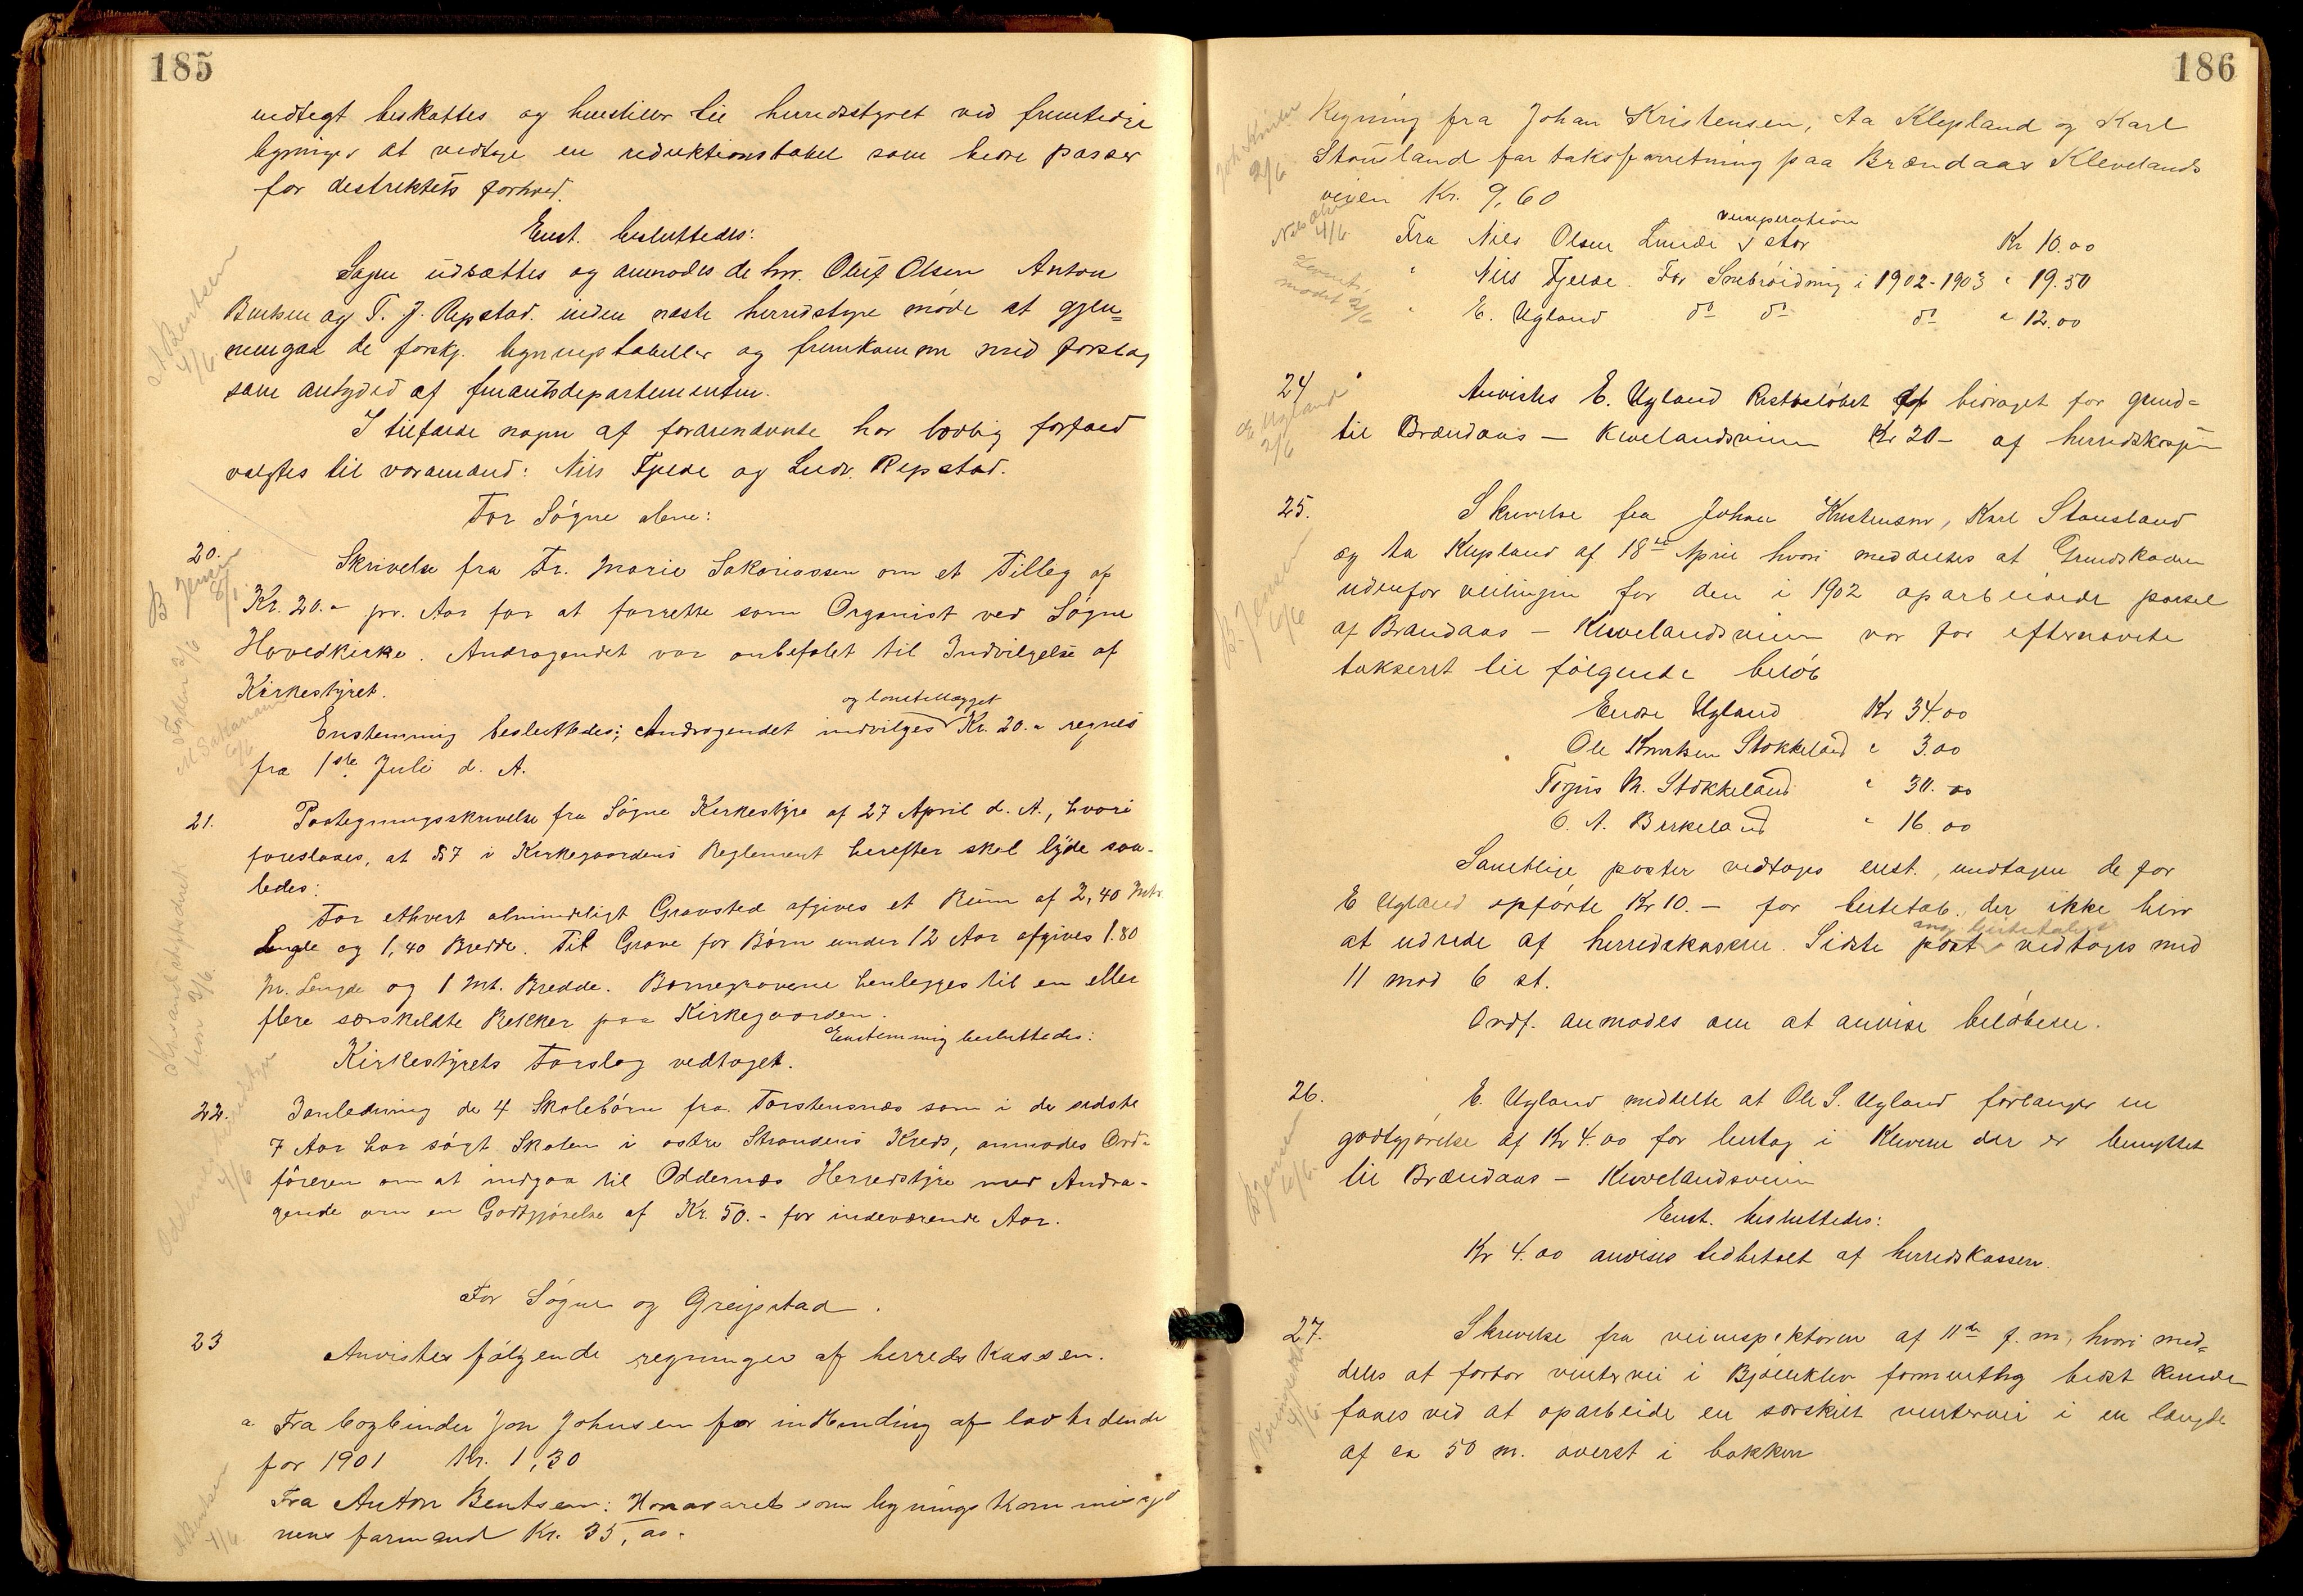 185
uretigt beskattes og henstiller til herredsstyret ved fremtidige
ligninger at vedtage en reduktionstabel som bedre passer
for destriktets forhold.
Enst. besluttedes:
Sagen udsættes og anmodes de hrr. Oluf Olsen Anton
Bentsen og T. J. Repstad inden næste herredstyre møde at gjen=
nemgaa de forskj. ligningstabeller og fremkomme med forslag
som antydet af finantsdepartementen.
I tilfælde nogen af forannævnte har lovlig forfald
valgtes til varamænd: Nils Fjelde og Ludv. Repstad.
A Bentsen
4/6
For Søgne alene:
20.
Skrivelse fra Fr. Marie Sakariassen om et Tilleg af
Kr. 20.- pr. Aar for at forrette som Organist ved Søgne
Hovedkirke. Andragendet var anbefalet til Indvilgelse af
Kirkestyret.
og lønstillægget
Enstemmig besluttedes; Andragendet indvilges Kr. 20.- regnes
fra 1ste Juli d. A.
B Jensen
21.
Paategningsskrivelse fra Søgne Kirkestyre af 27 April d. A., hvori
foreslaaes, at § 7 i Kirkegaardens Reglement herefter skal lyde saa-
ledes:
For ethvert almindeligt Gravsted afgives et Rum af 2,40 Mtr.
Lengde og 1,40 Bredde. Til Grave for Børn under 12 Aar afgives 1.80
M. Lengde og 1 Mt. Bredde. Børnegravene henlegges til en eller
flere særskildte Rekker paa Kirkegaarden.
Enstemmig besluttedes:
Kirkestyrets Forslag vedtaget.
22.
Ianledning de 4 Skolebørn fra Torstensnæs som i de sidste
7 Aar har søgt Skolen i østre Strandens Kreds, anmodes Ord-
føreren om at indgaa til Oddernæs Herredstyre med Andra-
gende om en Godtgjørelse af Kr. 50.- for indeværende Aar.
4/6
For Søgne og Greipstad.
23
Anvistes følgende regninger af herredskassen.
a Fra bogbinder Jon Johnsen for indbinding af lovtidende
for 1901 Kr. 1,30
Fra Anton Bentsen: Honoraret som ligningskommisjo
nens formand Kr. 35,00.
A Bentsen
4/6
186
Regning fra Johan Kristensen, Aa Klepland og Karl
Stousland for taksforretning paa Brændaas Klevelands
veien Kr. 9,60
2/6
Fra Nils Olsen Lunde Kr 10.00
" Nils Fjelde. For Snebrøidning i 1902-1903 " 19.50
" E. Ugland do do do " 12.00
Nils Olsen
4/6
24
Anvistes E. Ugland Restbeløbet af bidraget for grund=
til Brændaas - Kleivelandsveien Kr 20- af herredskassen
E Ugland
2/6
25.
Skrivelse fra Johan Kristensen, Karl Stousland
og Aa Klepland af 18de April hvori meddeltes at Grundskaden
udenfor veilinjen for den i 1902 oparbeidede parsel
af Brændaas - Kleivelandsveien var for efternævnte
takseret til følgende beløb
Endre Ugland Kr 34.00
Ole Knutsen Stokkeland " 3.00
Torjus N. Stokkeland " 30.00
O. A. Birkeland " 16.00
B. Jensen
6/6
Samtlige poster vedtages enst., undtagen de for
E Ugland opførte Kr 10.- for beitetab, der ikke blir
at udrede af herredskassen. Sidste post ang beitetabet vedtages med
11 mod 6 st.
Ordf. anmodes om at anvise beløbene.
26.
E. Ugland meddelte at Ole S. Ugland forlanger en
godtgjørelse af Kr 4.00 for landtag i Klevene der er benyttet
til Brændaas - Kleivelandsveien
Enst. besluttedes:
Kr 4.00 anvises udbetalt af herredskassen.
B Jensen
6/6
27.
Skrivelse fra veiinspektøren af 11te f. m, hvori med=
deles at forbor vintervei i Bjelleklev formentlig bedst kunde
faaes ved at oparbeide en særskilt vintervei i en længde
af ca 50 m. øverst i bakken
4/6